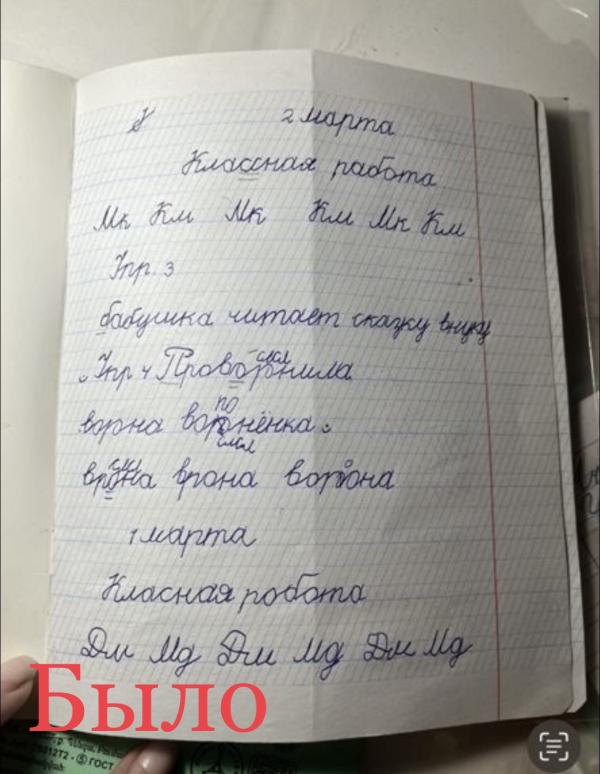 2 марта
Классная работа
Мк Км Мк Км Мк Км
Упр. 3
бабушка читает сказку внуку
Упр 4 Проворнила
ворна ворнёнка.
врона врона ворона
1 марта
Класная робота
Дм Мд Дм Мд Дм Мд
Было
ГОСТ